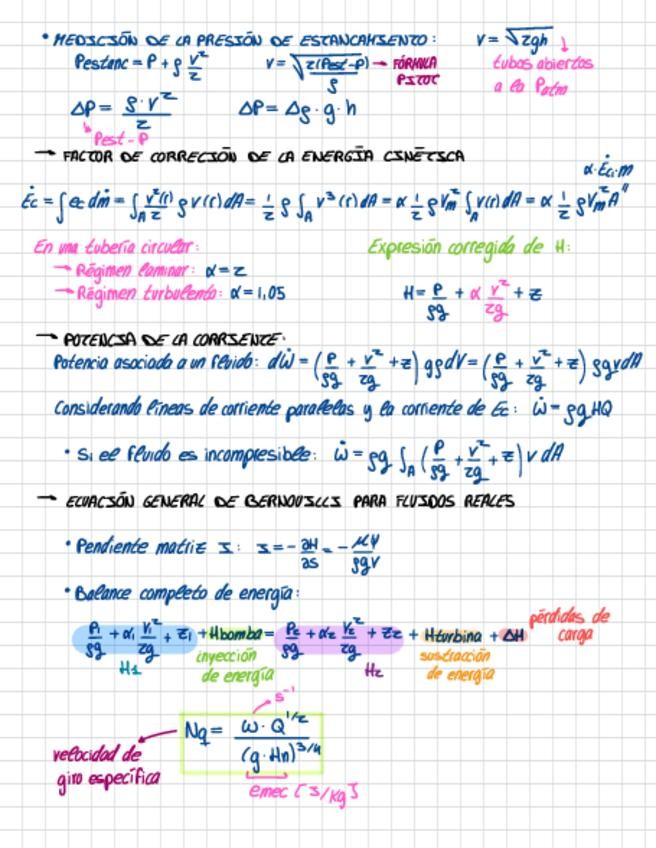 • MEDICIÓN DE LA PRESIÓN DE ESTANCAMIENTO: v = √2gh
Pestanc = P + ρ v²/2 v = √(2(Pest-P)/ρ) → FÓRMULA PITOT tubos abiertos a la Patm
ΔP = ρ·v²/2 ΔP = Δρ·g·h
Pest - P
→ FACTOR DE CORRECIÓN DE LA ENERGÍA CINÉTICA
α·Ėc·m
Ėc = ∫ec dṁ = ∫A v²(r)/2 ρ v(r) dA = 1/2 ρ ∫A v³(r) dA = α 1/2 ρ Vm² ∫A v(r) dA = α 1/2 ρ Vm² A"
En una tubería circular: Expresión corregida de H:
→ Régimen laminar: α = 2
→ Régimen turbulento: α = 1,05 H = P/ρg + α v²/2g + z
→ POTENCIA DE LA CORRIENTE:
Potencia asociado a un fluido: dẆ = (P/ρg + v²/2g + z) gρdV = (P/ρg + v²/2g + z) ρgvdA
Considerando líneas de corriente paralelas y la corriente de Ec: Ẇ = ρgHQ
• Si el fluido es incompresible: Ẇ = ρg ∫A (P/ρg + v²/2g + z) v dA
→ ECUACIÓN GENERAL DE BERNOUILLI PARA FLUIDOS REALES
• Pendiente matriz I: I = - ∂H/∂s = - μψ/ρgv
• Balance completo de energía:
P1/ρg + α1 V1²/2g + z1 + Hbomba = P2/ρg + α2 V2²/2g + z2 + Hturbina + ΔH pérdidas de carga
H1 inyección de energía H2 sustracción de energía
s⁻¹
Nq = ω·Q^1/2 / (g·Hn)^3/4
velocidad de giro específica
emec [J/kg]